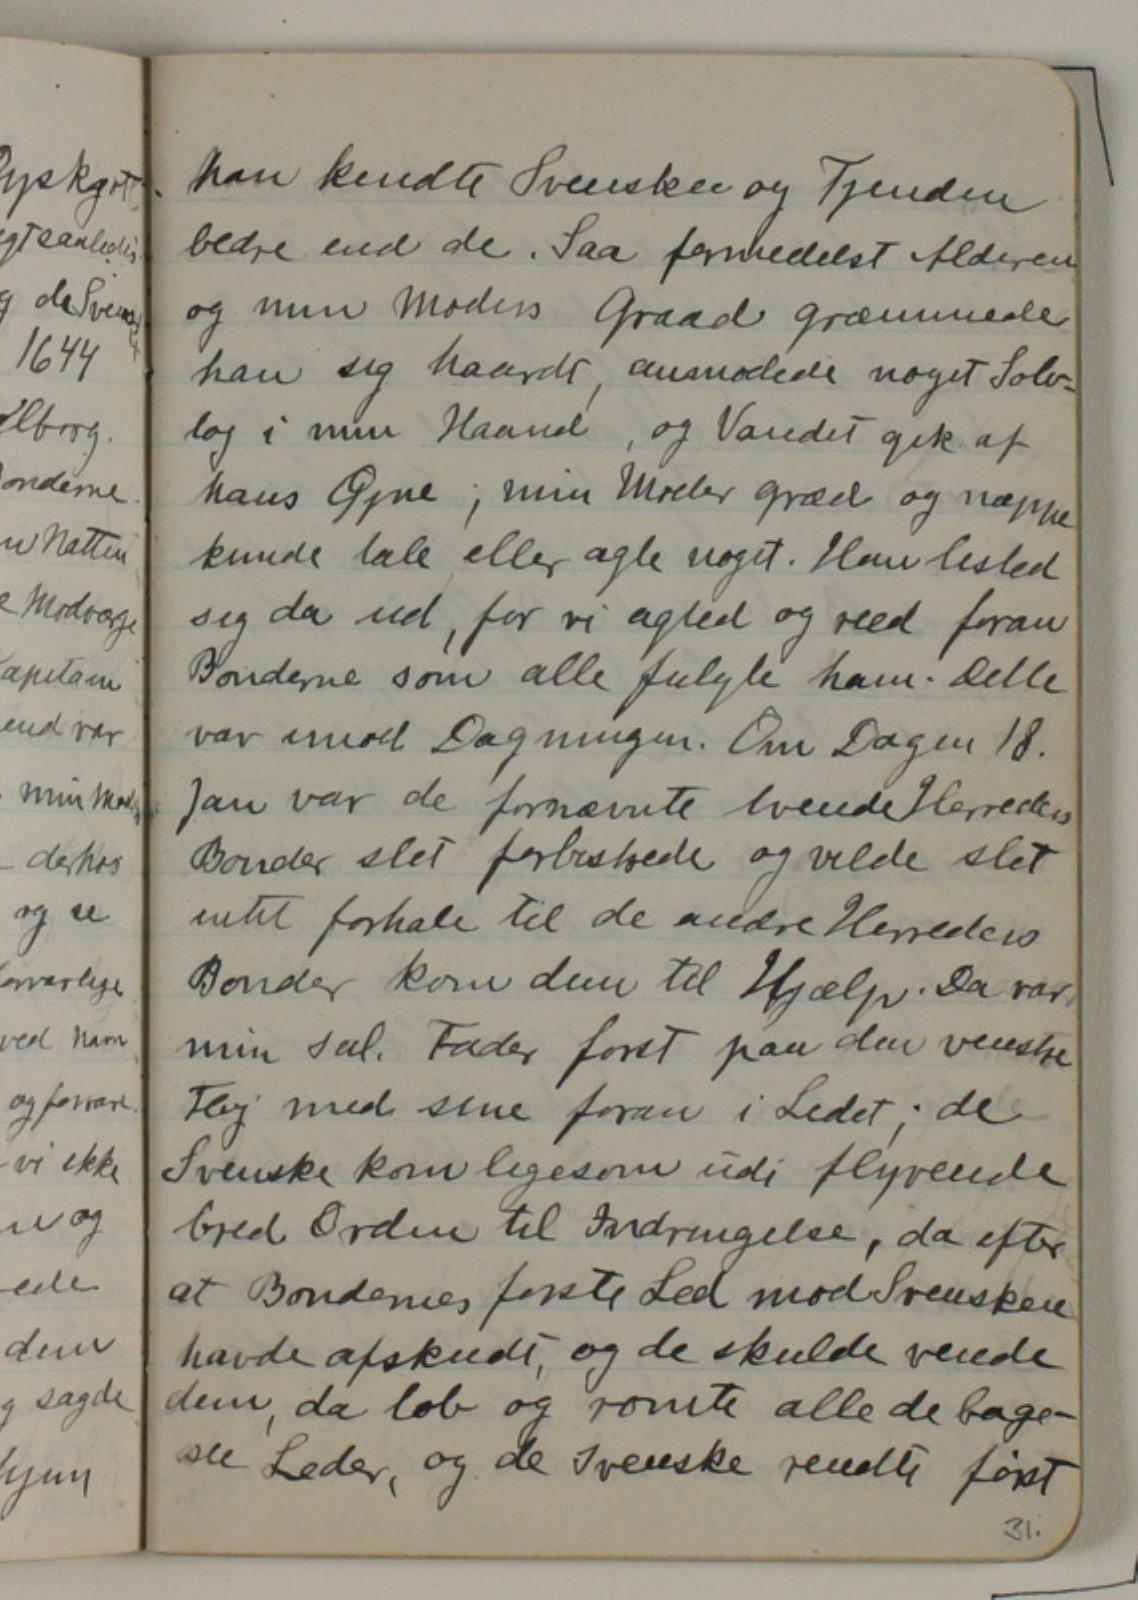 yskgrt
gtsaaledes
g de Svenske
1644
lborg.
onderne
n Natten
e Modværge
apitain
end var
min Moder
derhos
og se
orvarlige
ved Navn
og forvare
vi ikke
n og
ede
dem
g sagde
hjem
han kendte Svensken og Fjenden
bedre end de. Saa formedelst Alderen
og min Moders Graad græmmede
han sig haardt, anmodede noget Solv-
log i min Haand, og Vandet gik af
hans Øjne; min Moder græd og næppe
kunde tale eller agte noget. Han listed
sig da ud, for vi agted og reed foran
Bonderne som alle fulgte ham. Dette
var imod Dagningen. Om Dagen 18.
Jan var de fornævnte tvende Herreders
Bonder slet forbistrede og vilde slet
intet forhale til de andre Herreders
Bonder kom dem til Hjælp. Da var
min sal. Fader forst paa den venstre
Floj med sine foran i Ledet; de
Svenske kom ligesom udi flyvende
bred Orden til Indringelse, da efter
at Bondernes forste Led mod Svensken
havde afskudt, og de skulde vende
dem, da lob og romte alle de bage-
ste Leder, og de Svenske rendte først
31.